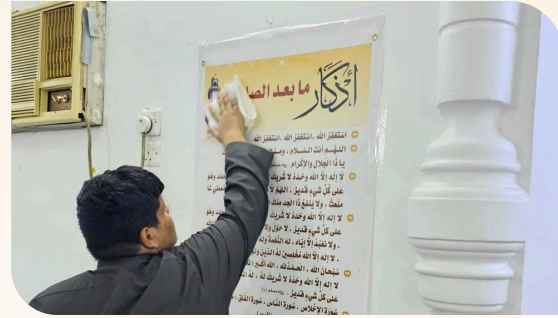 أذكار ما بعد
استغفرُ الله ، استغفرُ الله ، استغفرُ الله
اللهم أنت السلام ، ومنك
يا ذا الجلال والإكرام.
لا إله إلا الله وحدهُ لا شريك
على كلِّ شيءٍ قديرٌ ، اللهمَّ لا
منعتَ ، ولا ينفعُ ذا الجد منك
لا إله إلا الله وحدهُ لا شريك
على كلِّ شيءٍ قديرٌ ، لا حول ولا
، ولا نعبدُ إلا إيّاه ، له النعمة وله
، لا إله إلا الله مُخلصين لهُ الدين
سُبحان الله ، الحمدُ لله ، الله أكبر
لا إله إلا الله وحدهُ لا شريك لهُ ، لهُ
على كلِّ شيءٍ قديرٌ.
سُورة الإخلاص ، سُورة النّاس ، سُورة الفلق